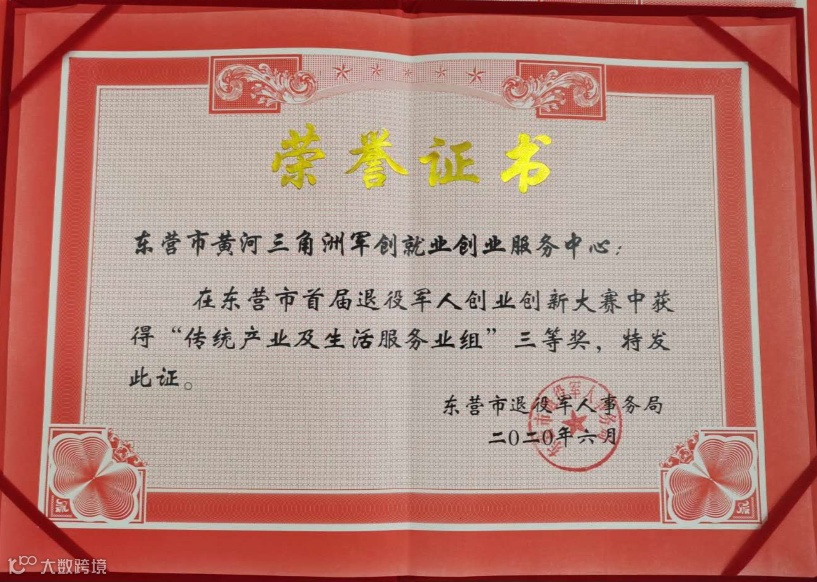 荣誉证书
东营市黄河三角洲军创就业创业服务中心：
在东营市首届退役军人创业创新大赛中获
得“传统产业及生活服务业组”三等奖，特发
此证。
东营市退役军人事务局
二〇二〇年六月
东营市退役军人事务局
大数跨境